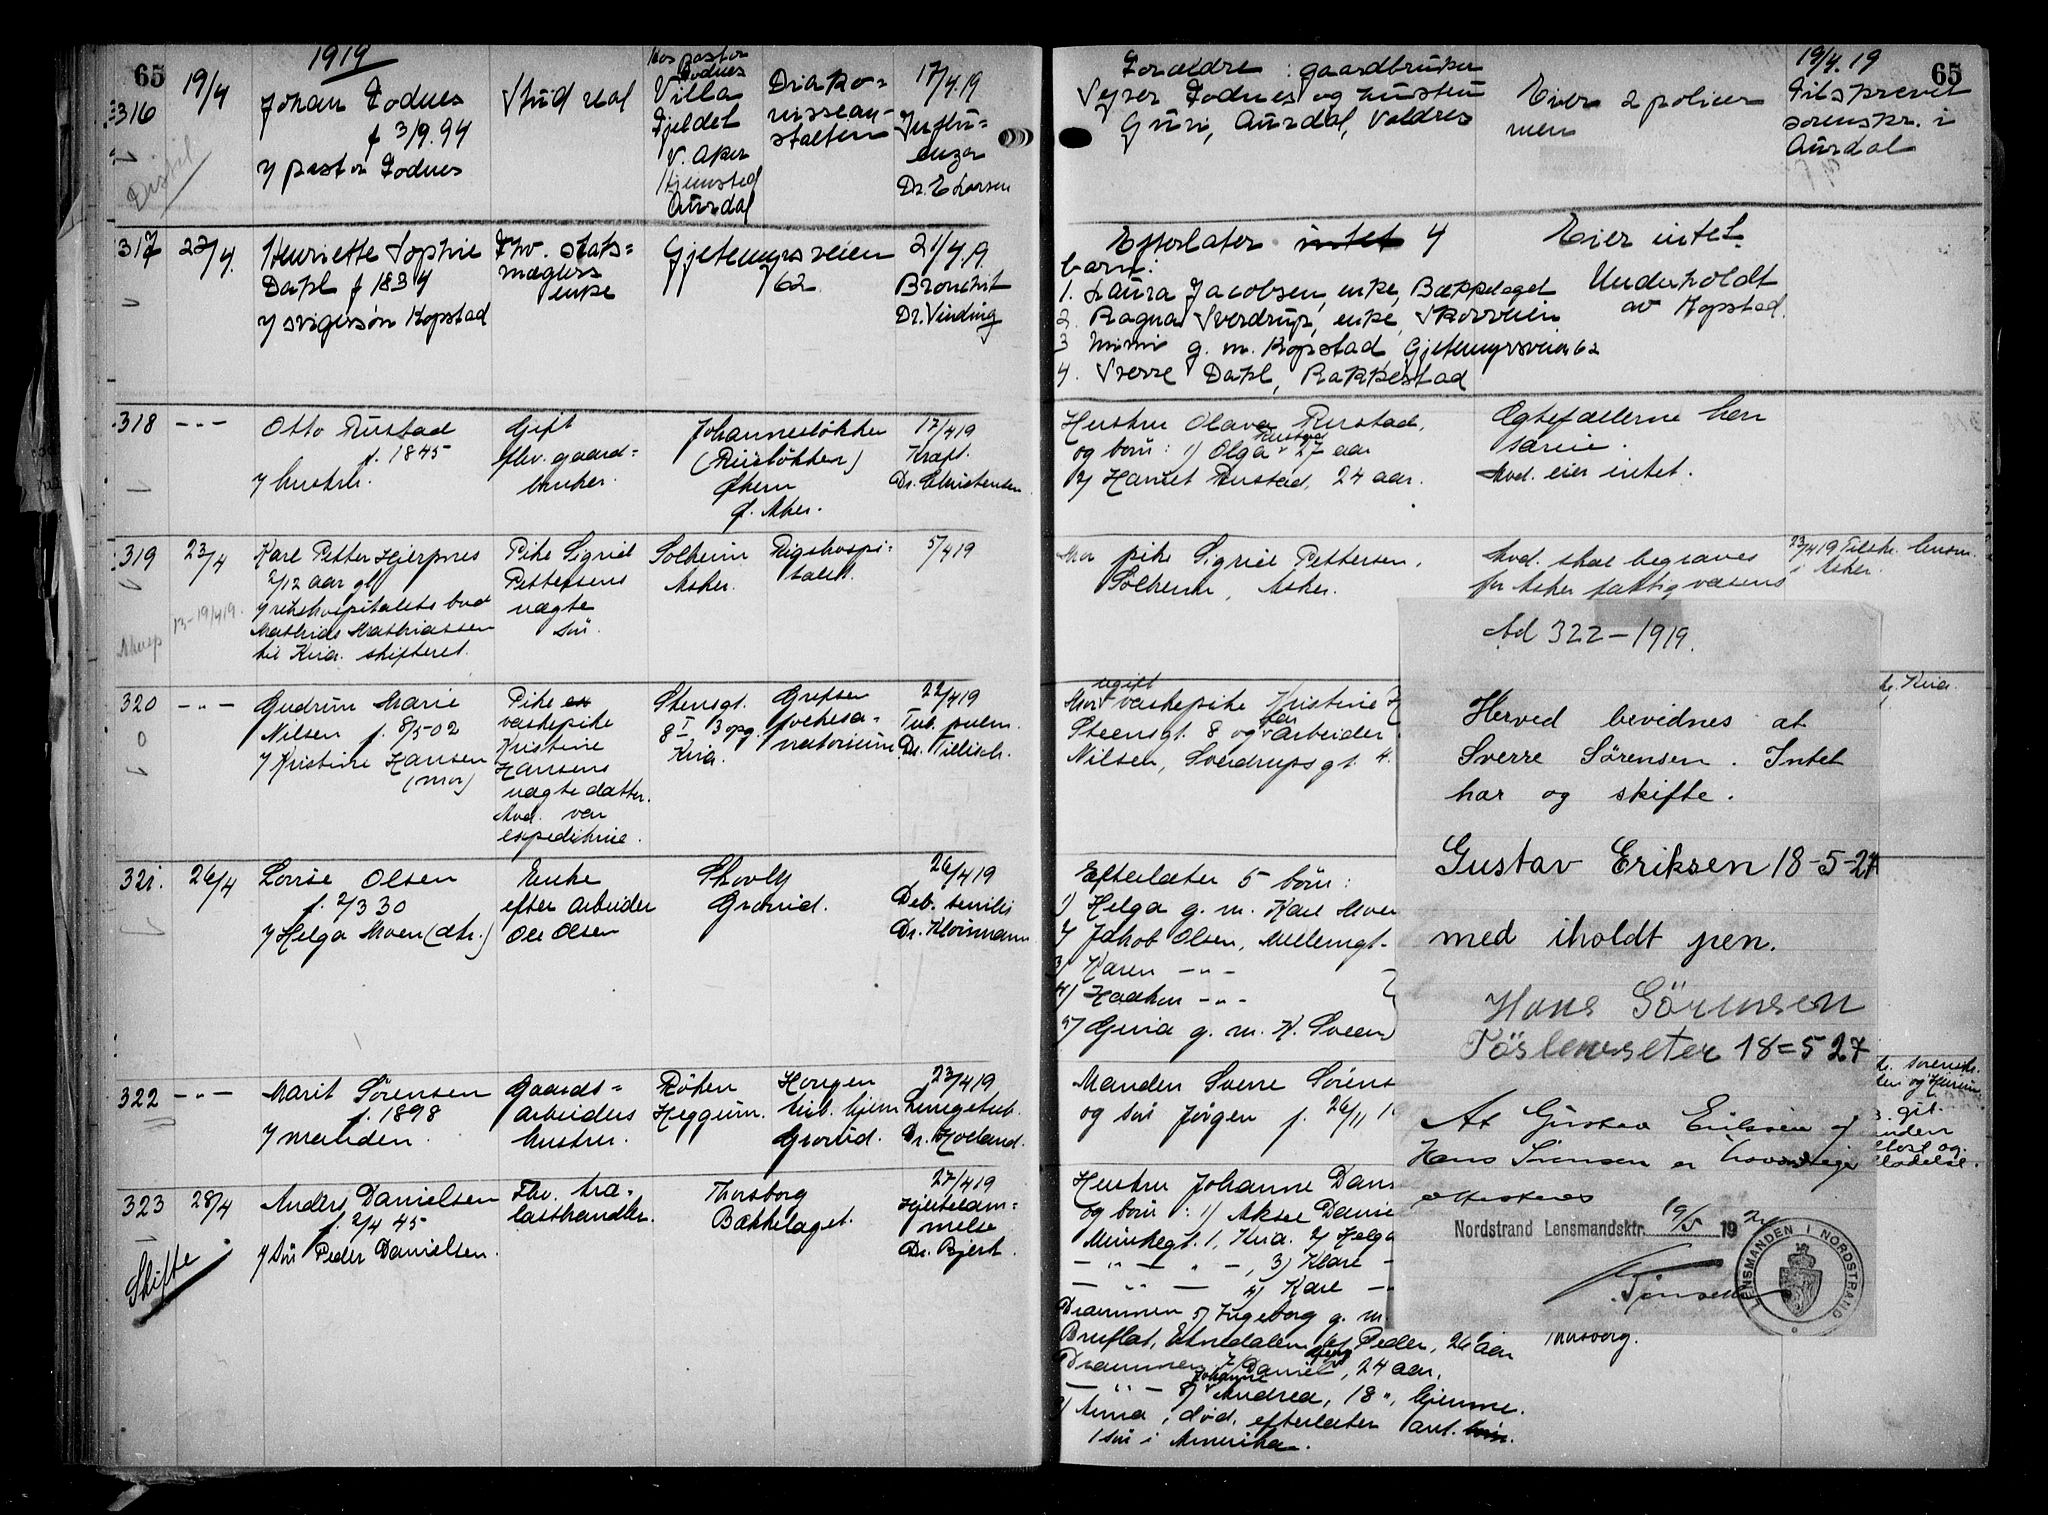 65
1919
316
19/4
Johan Fodnes
f 3/9.94
pastor Fodnes
Stud real
Hos pastor
Fodnes
Villa
Fjeldet
V. Aker
Hjemsted
Aurdal
Diako-
nissean-
stalten
17/4.19
Influ-
enza
Dr. E Larsen
317
22/4.
Henriette Sophie
Dahl f 1834
svigersøn Kopstad
Fhv. stats-
mæglers
enke
Gjetemyrsveien
62.
21/4.19.
Bronchit
Dr. Vinding
318
-"-
Otto Rustad
f. 1845
hustru.
Gift
fhv. gaard-
bruker.
Johannesløkken
(Riisløkken)
Økern
Ø. Aker.
17/4 19
Kræft.
Dr. Christensen
319
23/4
Karl Petter Hjerpnes
2/12 aar gl
rikshospitalets bud
Mathias Mathiassen
til Kria. skifteret.
13-19/4 19.
Pike Sigrid
Pettersens
uægte
søn.
Solheim
Asker.
Rigshospi-
talet.
5/4 19
320
-"-
Gudrun Marie
Nilsen f. 8/5 02
Kristine Hansen
(mor)
Pike
vaskepike
Kristine
Hansens
uægte datter.
Avd. var
expeditrice.
Stensgt.
8 I 3 opg.
Kria.
Grefsen
folkesa-
natorium
22/4 19
Tub. pulm.
Dr. Tillisch.
321.
26/4
Lovise Olsen
f. 2/3 30
Helga Moen (dtr.)
Enke
efter arbeider
Ole Olsen
Skovly
Grorud.
26/4 19
Deb. senilis
Dr. Kloumann
322
-"-
Marit Sørensen
f. 1898
manden.
Gaards-
arbeiders
hustru.
Røken
Heggum.
Haugen
tub. hjem
Grorud.
23/4 19
Lungetub.
Dr. Holand.
323
28/4
Skifte
Anders Danielsen
f. 2/4 45
søn Peder Danielsen.
Fhv. tra-
lasthandler.
Thorsborg
Bækkelaget.
27/4 19
Hjertelam-
melse
Dr. Bjert.
65
Forældre: gaardbruker
Syver Fodnes og hustru
Guri, Aurdal, Valdres
Eier 2 policer
men
19/4.19
Tilskrevet
sorenskr. i
Aurdal
Efterlater intet 4
barn:
1. Laura Jacobsen, enke, Bækkelaget
2. Ragna Sverdrup, enke, Skovveien
3 Mimi g. m. Kopstad Gjetemyrsveien 62
4. Sverre Dahl, Rakkestad
Eier intet.
Underholdt
av Kopstad.
Hustru Olava Rustad,
og børn: 1) Olga Rustad 27 aar
2) Harriet Rustad, 24 aar.
Ægtefællerne hav.
særeie.
Avd. eier intet.
Mor pike Sigrid Pettersen,
Solheim, Asker.
Avd. skal begraves
for Asker fattigvæsens
23/4 19 Tilskr. lensm.
i Asker.
Mor ugift vaskepike Kristine H
Steensgt. 8 og far arbeider
Nilsen, Sverdrupsgt. 4.
Kria.
Efterlater 5 børn:
1) Helga g. m. Karl Moen
2) Jakob Olsen, Møllergt-
3) Karen -"-
4) Haakon -"-
5) Guria g. m. K. Sveen
Manden Sverre Sørens
og søn Jørgen f. 26/11 19
Hustru Johanne Dani
og børn: 1) Aksel Danie
Munkegt. 1, Kria. 2) Helga
- " - " -, 3) Klara -
- " - 4) Karl -
Drammen 5) Ingeborg g. m.
Bruflat, Etnedalen 6) Peder, 26 aar Thorsborg.
Drammen 7) Daniel Georg, 24 aar,
- " - 8) Johanne Andrea, 18 ", hjemme.
9) Anna, død, efterlater
1 søn i Amerika.
Ad 322-1919.
Herved bevidnes at
Sverre Sørensen. Intet
har og skifte.
Gustav Eriksen 18-5-24
med iholdt pen.
Hans Sørensen
18=5 24
At Gustav Eriksen og
Hans Sørensen er
attesteres
Nordstrand Lensmandsktr. 19/5 1924
LENSMANDEN I NORDSTRAND